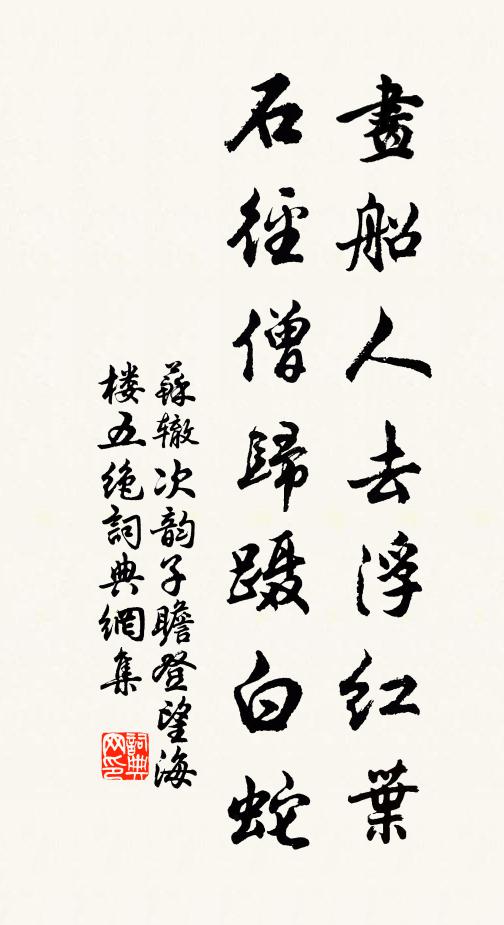 畫船人去浮紅葉
石徑僧歸躡白蛇
蘇辙次韵子瞻登望海
楼五绝詞典網集
詞典
网印